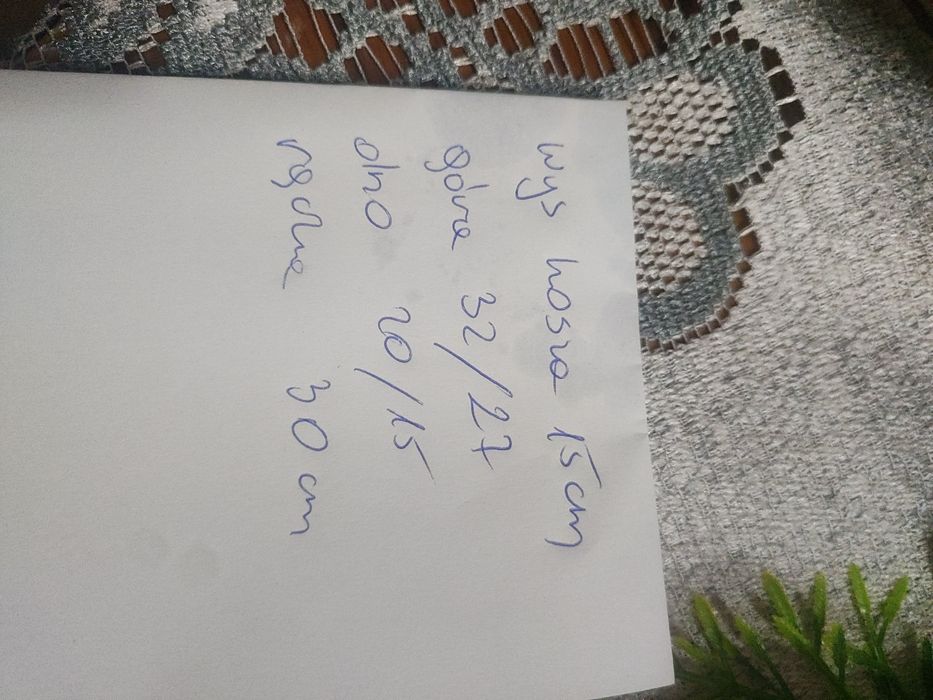 wys kosza 15cm
góra 32/27
dno 20/15
rączka 30 cm